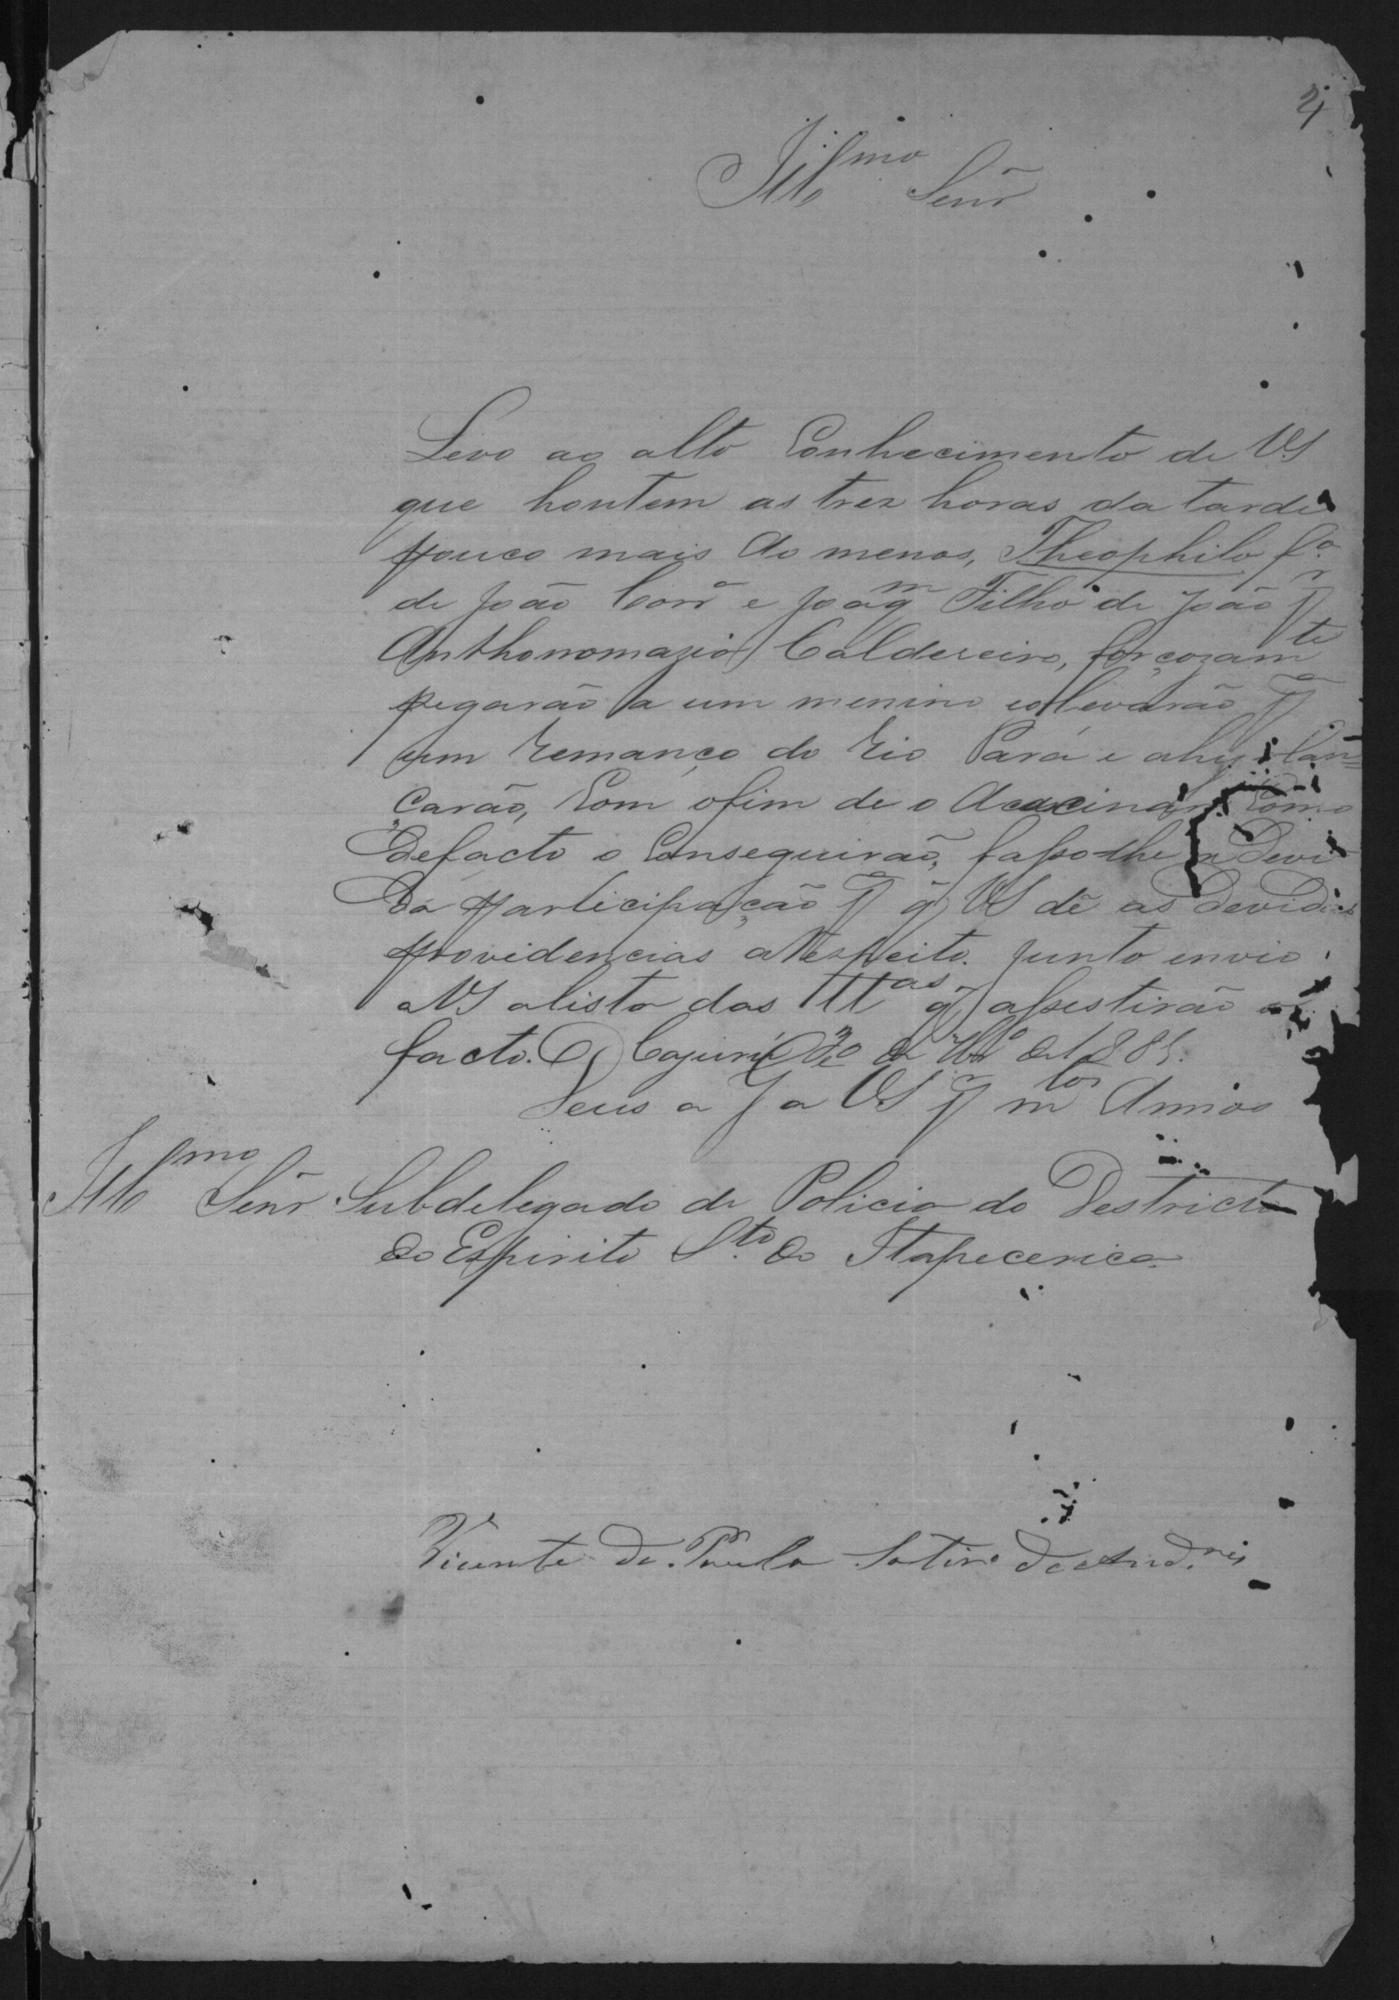 4
Illmo Senr
Levo ao alto Conhecimento de VS
que hontem as trez horas da tarde
pouco mais Ao menos, Theophilo fo
de João Corra e Joaqm Filho de João pr
Anthonomazio Caldereiro, forçozamte
pegarão a um menino e o levarão p
um remanço do Rio Pará e ahy o lan=
çarão, Com o fim de o Acacinar Como
Defacto o Conseguirão, fasso-lhe a Devi
Da participação pa q VS dê as Devidas
providencias aRespeito. Junto envio
a VS alista das TTas q assestirão o
facto. Cajurú de de 188
Deus a Ja VS pr mtos Annos
Illmo Senr Subdelegado de Policia do Destricto
do Espirito Sto do Itapecerica
Vicente de Paula Satiro de